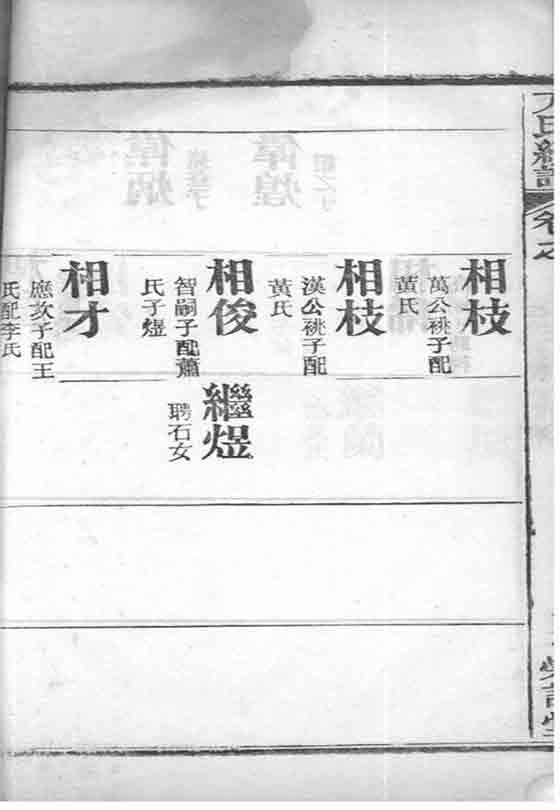 相枝
萬公祧子配
黃氏
相枝
漢公祧子配
黃氏
相俊
智嗣子配蕭
氏子煜
繼煜
聘石女
相才
應次子配王
氏配李氏